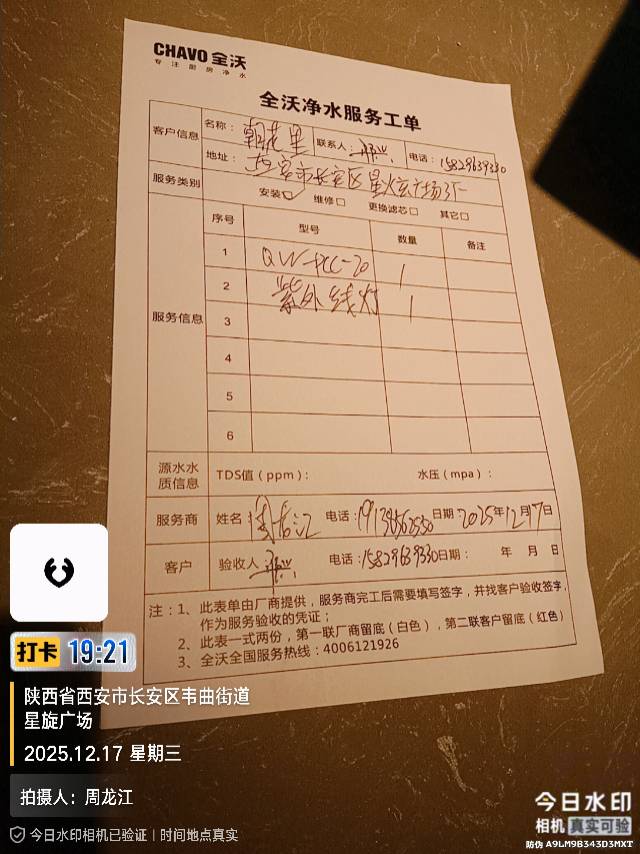 CHAVO 全沃
专 注 厨 房 净 水
全沃净水服务工单
客户信息 名称： 朝花里 联系人： 电话：15829639330
地址： 西安市长安区星火玄广场3F
服务类别 安装☑ 维修□ 更换滤芯□ 其它□
服务信息 序号 型号 数量 备注
1 1
2 紫外线灯 1
3
4
5
6
源水水质信息 TDS值（ppm）： 水压（mpa）：
服务商 姓名 周龙江 电话： 日期：2025年12月17日
客户 验收人 电话：15829639330 日期： 年 月 日
注：1、此表单由厂商提供，服务商完工后需要填写签字，并找客户验收签字，
作为服务验收的凭证；
2、此表一式两份，第一联厂商留底（白色），第二联客户留底（红色）
3、全沃全国服务热线：4006121926
打卡 19:21
陕西省西安市长安区韦曲街道
星旋广场
2025.12.17 星期三
拍摄人：周龙江
今日水印相机已验证 | 时间地点真实
今日水印
相机 真实可验
防伪 A9LM9B343D3MXT